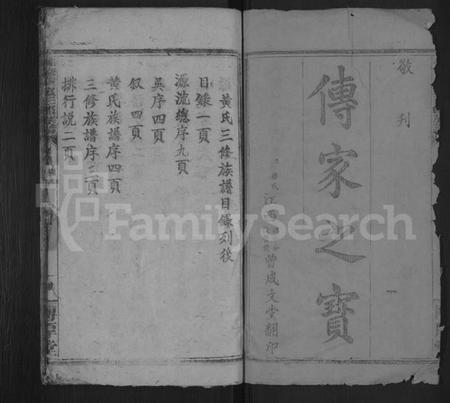 敬刊
傳家之寶
曾成文堂翻印
黃氏三修族譜目錄列後
目錄一頁
源流總序九頁
吳序四頁
叙四頁
黃氏族譜序四頁
三修族譜序三頁
排行説二頁
FamilySearch